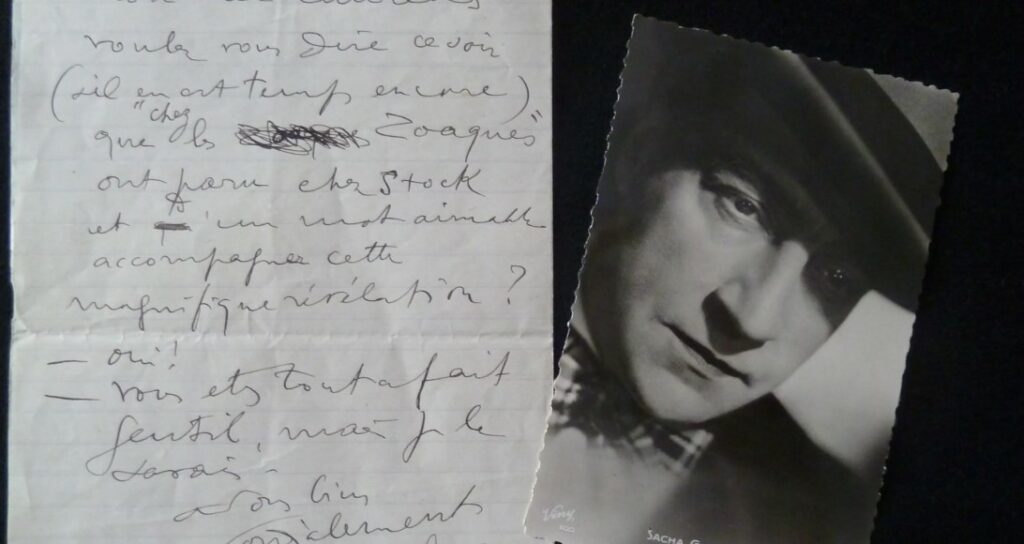 voulez vous dire ce soir
(s'il en est temps encore)
"chez
que les Zoaques"
ont paru chez Stock
et un mot aimable
accompagner cette
magnifique révélation ?
— oui !
— vous etes tout a fait
gentil, mais je le
savais -
a vous bien
cordialement
Viny
SACHA G